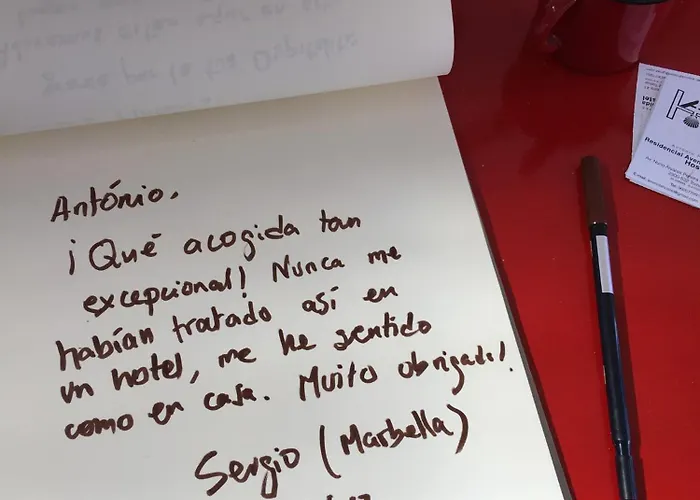 António.
¡Qué acogida tan
excepcional! Nunca me
habían tratado así en
un hotel, me he sentido
como en casa. Muito obrigado!
Sergio (Marbella)
Residencial Aven
Hos